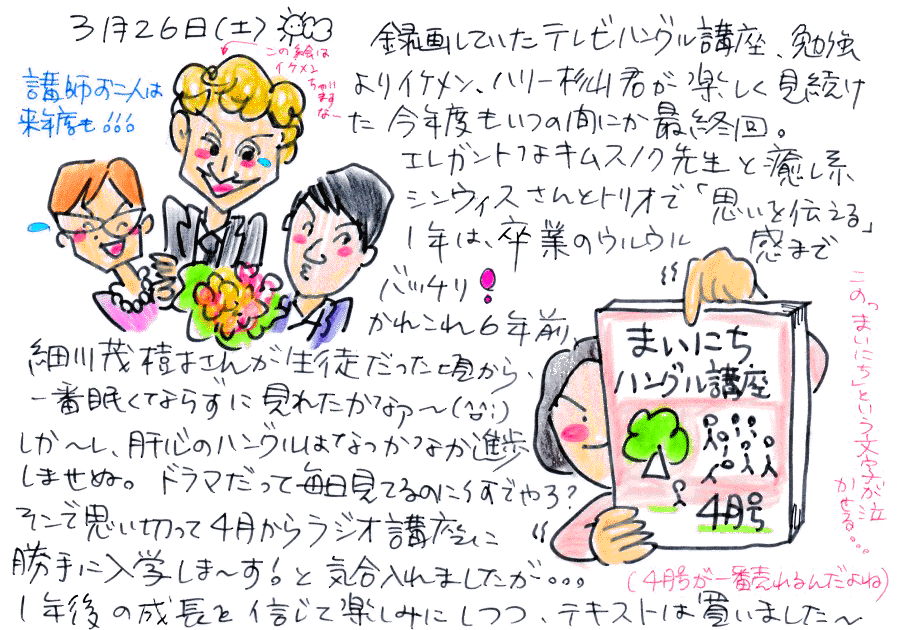 3月26日(土)
この絵は
イケメン
ちゃいます
なー
講師お二人は
来年度も!!!
録画していたテレビハングル講座、勉強
よりイケメン、ハリー杉山君が楽しく見続け
た今年度もいつの間にか最終回。
エレガントなキムスノク先生と癒し系
シンウィスさんとトリオで「思いを伝える」
1年は、卒業のウルウル 感まで
バッチリ!
かれこれ6年前、
細川茂樹さんが生徒だった頃から、
一番眠くならずに見れたかなァ〜(^^;)
しか〜し、肝心のハングルはなかなか進歩
しませぬ。ドラマだって毎日見てるのに何でやろ?
そこで思い切って4月からラジオ講座に
勝手に入学しま〜す!と気合入れましたが...
1年後の成長を信じて楽しみにしつつ、テキストは買いました〜
まいにち
ハングル講座
4月号
この「まいにち」という文字が泣
かせる...
(4月号が一番売れるんだよね)